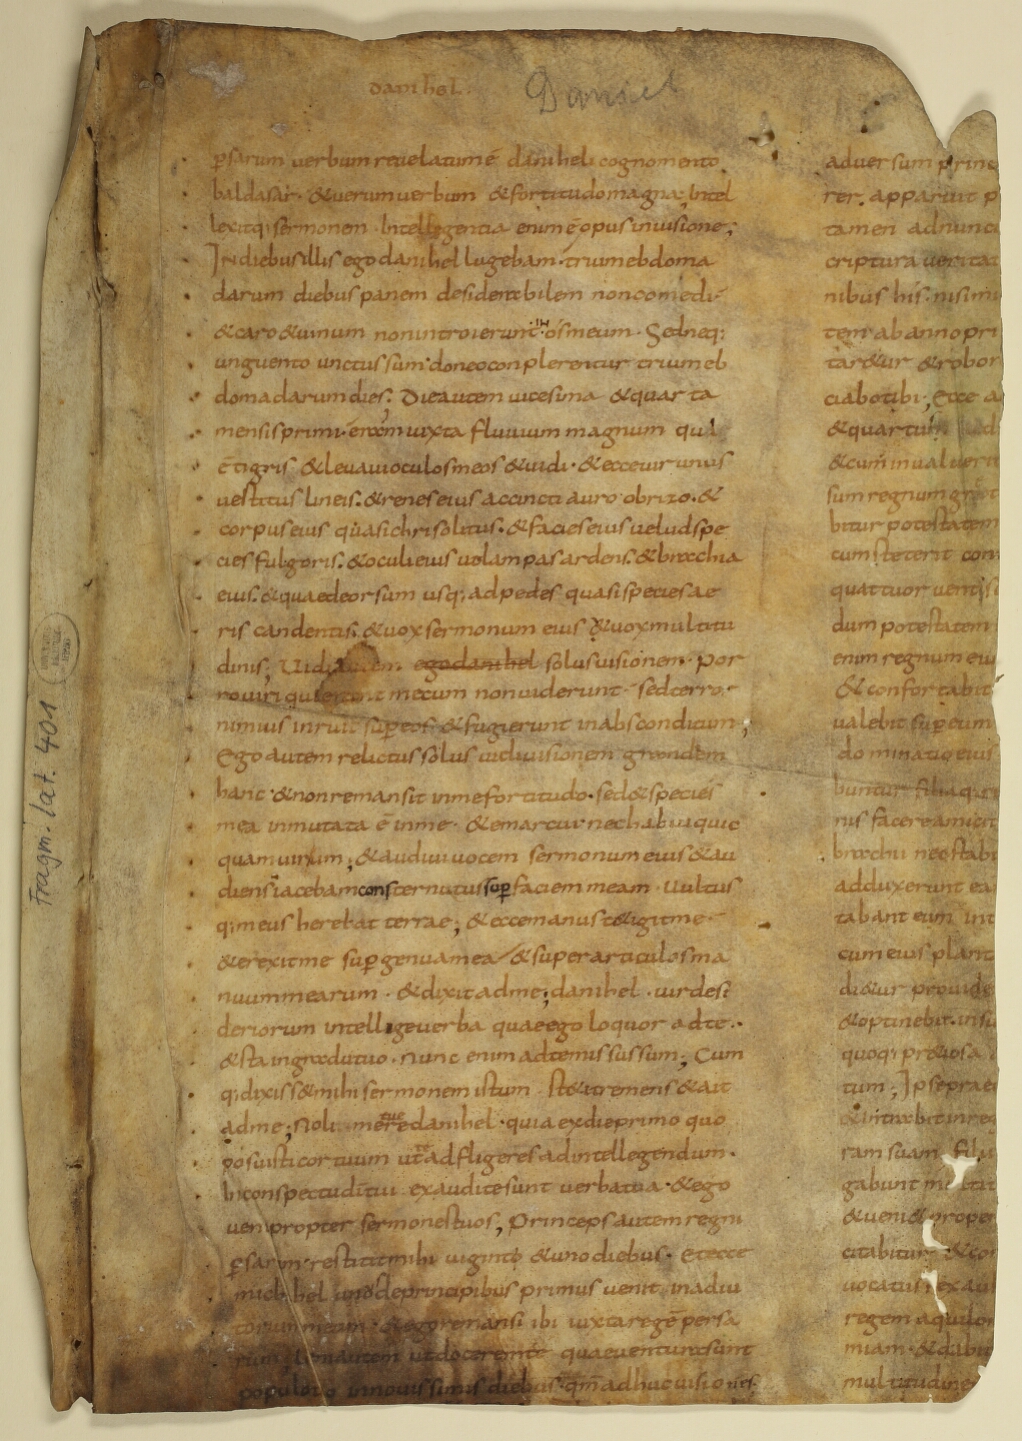 danihel
Daniel
p̱sarum uerbum reuelatumē daniheli cognomento
baldasar· &uerumuerbum &fortitudomagna; Intel
lexitq;sermonem· Intellegentia enimē opusinuisione;
Indiebusillis egodanihellugebam·triumebdoma
darum diebus panem desiderabilem noncomedi·
&caro&uinum nonintroierunt· IN osmeum· Sedneq;
unguento unctussum·doneoconplerentur triumeb
domadarumdies; Dieautem uicesima &quarta
mensisprimi·eramiuxta fluuium magnum qui
ē tigris &leuauioculosmeos&uidi·&ecceuirunus
uestitus lineis.&reneseius accincti auro obrizo.&
corpuseius quasichrisolitus.&facieseius ueludspe
ciesfulgoris.&oculieius ut lampasardens.&brachia
eius.&quaedeorsum usq; adpedes quasispeciesae
ris candentis.&uoxsermonum eius &uoxmultitu
dinis; Uidi egodanihel solusuisionem· Por
rouiri mecum nonuiderunt· sedterror
nimius inruit sup̱eos·&fugierunt inabsconditum;
Ego autem relictus solus uidiuisionem grandem
hanc·&nonremansit inmefortitudo·sed&species
mea inmutata ē inme·&emarcui nechabuiquic
quamuirium;&audiuiuocem sermonumeius&au
diensiacebamconsternatussup̱faciemmeam· Uultus
q;meus herebatterrae; &eccemanustetigitme·
&erexitme sup̱genuamea &superarticulosma
nuummearum·&dixitadme; danihel· uirdesi
deriorum intelligeuerba quaeego loquor adte..
&staingradutuo· Nunc enimadtemissussum; Cum
q;dixiss&mihisermonemistum· st&itremens&ait
adme; Noli me tuere danihel· quiaexdieprimo quo
posuisticortuum ut te adfligeresadintellegendum·
Inconspectuditui exauditesunt uerbatua·&ego
ueni propter sermonestuos, Princepsautemregni
p̱sarum·restititmihi uiginti &unodiebus· Etecce
michahel unusdeprincipibus primus uenit inadiu
torummeum·&egoremansi ibi iuxtaregēpersa
rum; utdocerem te quaeuenturasunt
populotuo innouissimis diebus·qm̄adhucuisio
aduersum princ
rer. apparuit p
tamen adnunc
criptura ueritat
nibus his· nisimi
tem·abannopri
tar&ur &robor
ciabotibi; Ecce a
&quartus
&cum inualuerit
sum regnum gr
bitur potestatem
cumsteterit con
quattuor uentos
dum potestatem
enim regnum eiu
&confortabit
ualebit sup̱eum
dominatioeius
buntur filiaq; re
nis facere amicit
brachii necstabi
adduxerunt ea
tabant eum int
cumeius plant
di&ur prouide
&optinebit·insu
quoq; pretiosa
tum; Ipseprae
&intrabitinreg
ram suam· Filii
gabunt
&ueni&proper
citabitur &con
uocatus rexau
regem aquilon
miam·&dabi
multitudine
Fragm. lat. 401